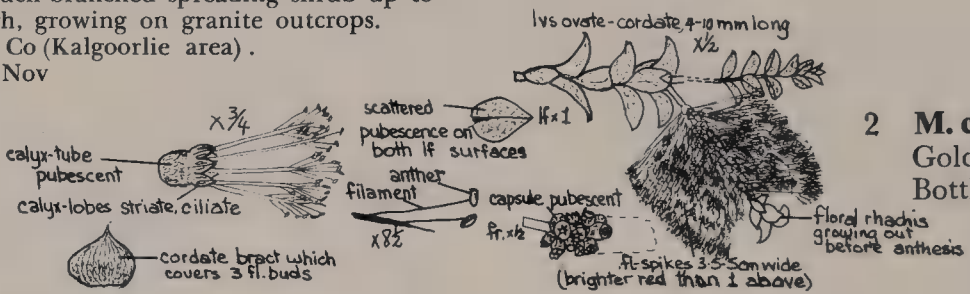 branched spreading shrub up to
h, growing on granite outcrops.
Co (Kalgoorlie area).
Nov
lvs ovate-cordate, 4-10 mm long
x½
x¾
scattered
pubescence on
both lf surfaces
lf x 1
calyx-tube
pubescent
calyx-lobes striate, ciliate
anther
filament
x8½
capsule pubescent
fr. x½
cordate bract which
covers 3 fl. buds
fl-spikes 3·5-5cm wide
(brighter red than 1 above)
floral rhachis
growing out
before anthesis
2 M. c
Gold
Bott